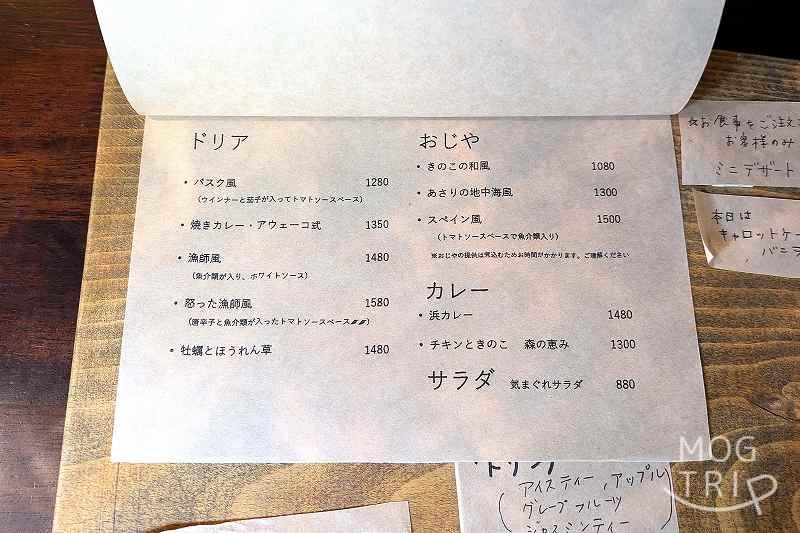 ドリア
・バスク風 1280
(ウインナーと茄子が入ってトマトソースベース)
・焼きカレー・アウェーコ式 1350
・漁師風 1480
(魚介類が入り、ホワイトソース)
・怒った漁師風 1580
(唐辛子と魚介類が入ったトマトソースベース)
・牡蠣とほうれん草 1480
おじや
・きのこの和風 1080
・あさりの地中海風 1300
・スペイン風 1500
(トマトソースベースで魚介類入り)
※おじやの提供は煮込むためお時間がかかります。ご理解ください
カレー
・浜カレー 1480
・チキンときのこ 森の恵み 1300
サラダ 気まぐれサラダ 880
☆お食事をご注文
お客様のみ
ミニデザート
本日は
キャロットケー
バニラ
ドリンク
アイスティー、アップル
グレープフルーツ
ジャスミンティー
MOG
TRIP